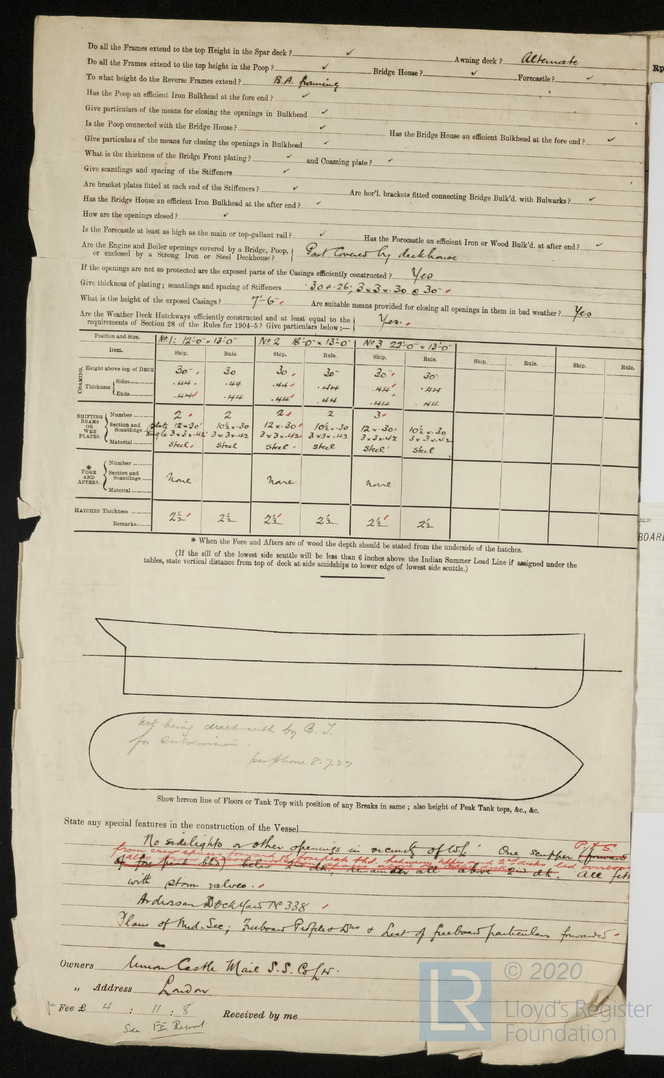 Do all the Frames extend to the top Height in the Spar deck? ✓ Awning deck? Alternate
Do all the Frames extend to the top height in the Poop? ✓ Bridge House? ✓ Forecastle? ✓
To what height do the Reverse Frames extend? B.A. framing
Has the Poop an efficient Iron Bulkhead at the fore end? ✓
Give particulars of the means for closing the openings in Bulkhead ✓
Is the Poop connected with the Bridge House? ✓ Has the Bridge House an efficient Bulkhead at the fore end? ✓
Give particulars of the means for closing the openings in Bulkhead ✓
What is the thickness of the Bridge Front plating? ✓ and Coaming plate? ✓
Give scantlings and spacing of the Stiffeners ✓
Are bracket plates fitted at each end of the Stiffeners? ✓ Are hor'l. brackets fitted connecting Bridge Bulk'd. with Bulwarks? ✓
Has the Bridge House an efficient Iron Bulkhead at the after end? ✓
How are the openings closed? ✓
Is the Forecastle at least as high as the main or top-gallant rail? ✓ Has the Forecastle an efficient Iron or Wood Bulk'd. at after end? ✓
Are the Engine and Boiler openings covered by a Bridge, Poop, or enclosed by a Strong Iron or Steel Deckhouse? Part Covered by deckhouse
If the openings are not so protected are the exposed parts of the Casings efficiently constructed? Yes
Give thickness of plating; scantlings and spacing of Stiffeners .30 & .26; 3 x 3 x .30 @ 30"
What is the height of the exposed Casings? 7'-6" Are suitable means provided for closing all openings in them in bad weather? Yes
Are the Weather Deck Hatchways efficiently constructed and at least equal to the requirements of Section 28 of the Rules for 1904-5? Give particulars below:— Yes.
Position and Size. No 1: 12'-0" x 13'-0" No 2 18'-0" x 13'-0" No 3 22'-0" x 13'-0"
Item. Ship. Rule. Ship. Rule. Ship. Rule. Ship. Rule. Ship. Rule.
COAMING. Height above top of DECK 30" 30 30 30" 30" 30
Thickness Sides .44 .44 .44 .44 .44 .44
Ends .44 .44 .44 .44 .44 .44
SHIFTING BEAMS OR WEB PLATES. Number 2 2 2 2 3
Section and Scantlings plate 12 x .30 10½ x .30 12 x .30 10½ x .30 12 x .30 10½ x .30
angle 3 x 3 x .42 3 x 3 x .42 3 x 3 x .42 3 x 3 x .42 3 x 3 x .42 3 x 3 x .42
Material Steel Steel Steel Steel Steel Steel
* FORE AND AFTERS. Number
Section and Scantlings None None None
Material
HATCHES Thickness 2½ 2½ 2½ 2½ 2½ 2½
Remarks
* When the Fore and Afters are of wood the depth should be stated from the underside of the hatches.
(If the sill of the lowest side scuttle will be less than 6 inches above the Indian Summer Load Line if assigned under the tables, state vertical distance from top of deck at side amidships to lower edge of lowest side scuttle.)
Not being dealt with by B.T.
for subdivision.
per phone 8.7.37
Show hereon line of Floors or Tank Top with position of any Breaks in same; also height of Peak Tank tops, &c., &c.
State any special features in the construction of the Vessel
No sidelights or other openings in vicinity of WL. One scupper P & S.
from crew space forward
below 2nd dk remainder all above 2nd dk. All fitted
with storm valves.
Ardrossan Dockyard No 338
Plans of Mid. Sec; Freeboard Profile & Dks & List of freeboard particulars forwarded
Owners Union Castle Mail S.S. Co Ld.
„ Address London
Fee £ 4 : 11 : 8 Received by me
See F.E. Report
BOAR
Rp
LR © 2020
Lloyd's Register
Foundation